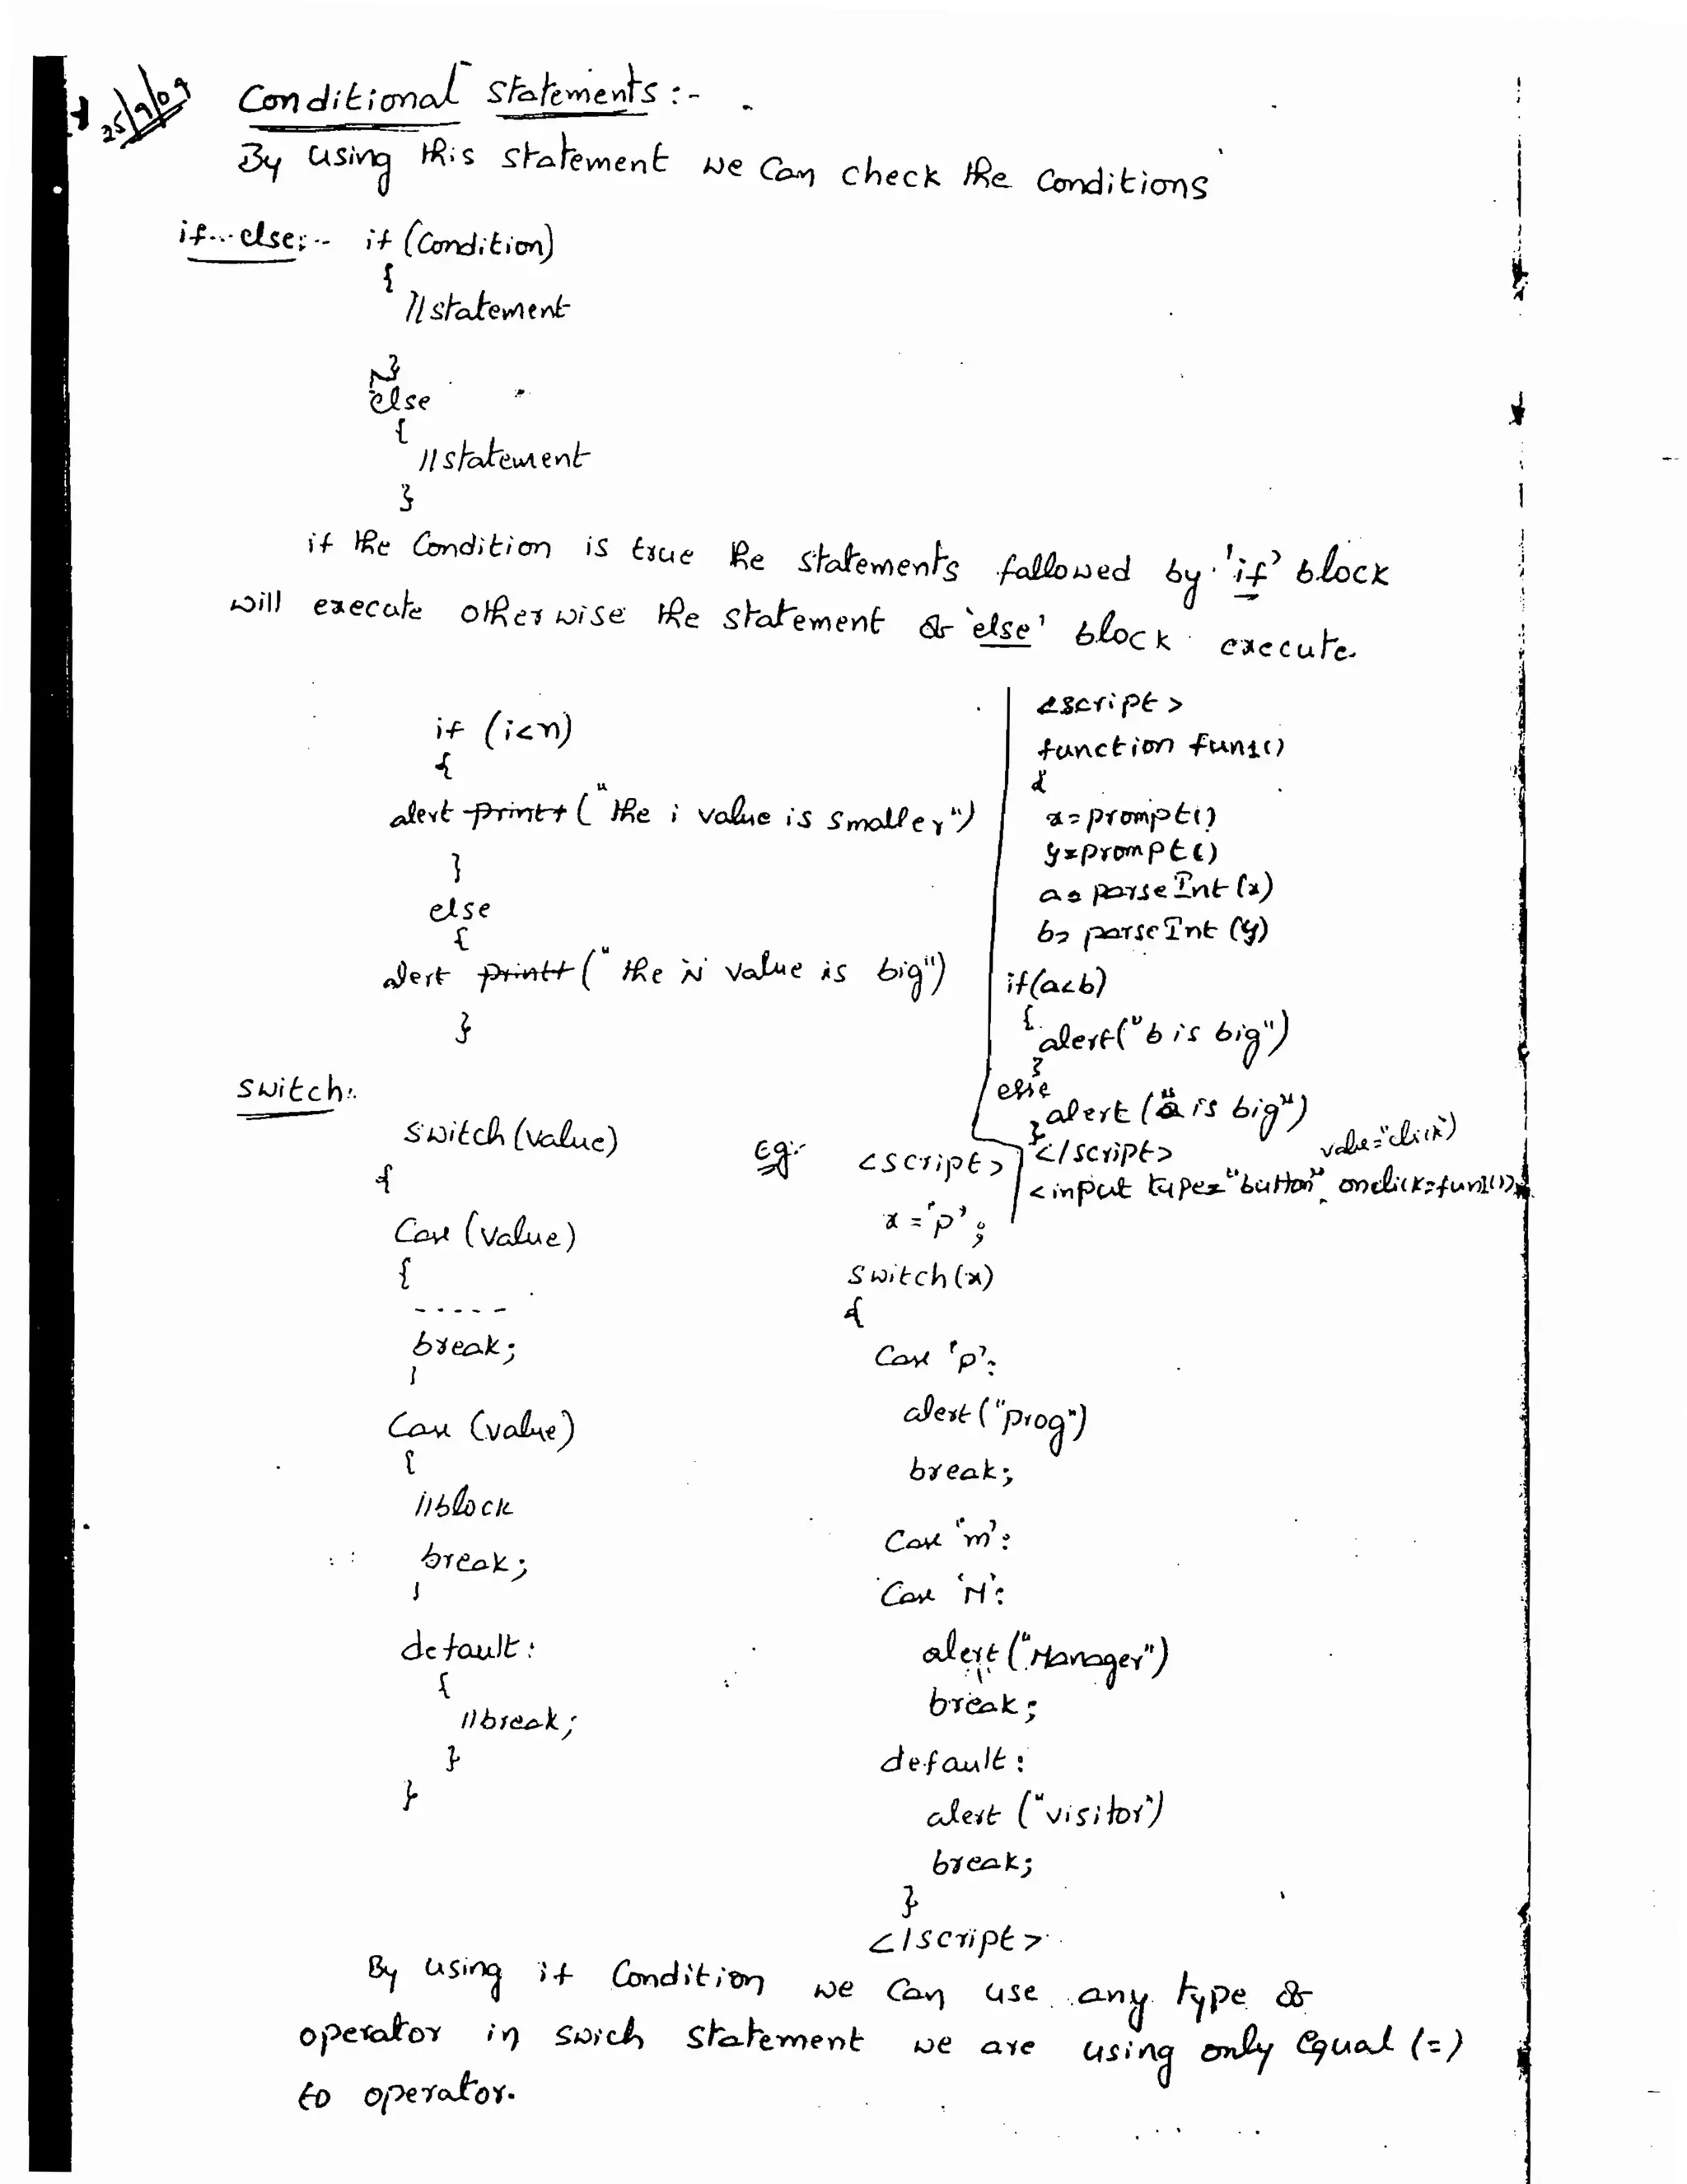 25/9/09
Conditional statements :-
By using this statement we can check the conditions
if...else:-- if (condition)
{
//statement
}
else
{
//statement
}
if the condition is true the statements fallowed by 'if' block
will execute otherwise the statement of 'else' block execute.
if (i<n)
{
alert printf ("the i value is smaller")
}
else
{
alert printf ("the N value is big")
}
<script>
function fun1()
{
x=prompt()
y=prompt()
a=parseInt(x)
b=parseInt(y)
if(a<b)
{
alert("b is big")
}
else
alert("a is big")
}
</script>
<input type="button" value="click" onclick=fun1()>
switch:-
switch (value)
{
case (value)
{
-----
break;
}
case (value)
{
//block
break;
}
default:
{
//break;
}
}
Eg:-
<script>
x='p';
switch(x)
{
case 'p':
alert("prog")
break;
case 'm':
case 'M':
alert("Manager")
break;
default:
alert ("visitor")
break;
}
</script>
By using if condition we can use any type of
operator in swich statement we are using only equal (=)
to operator.